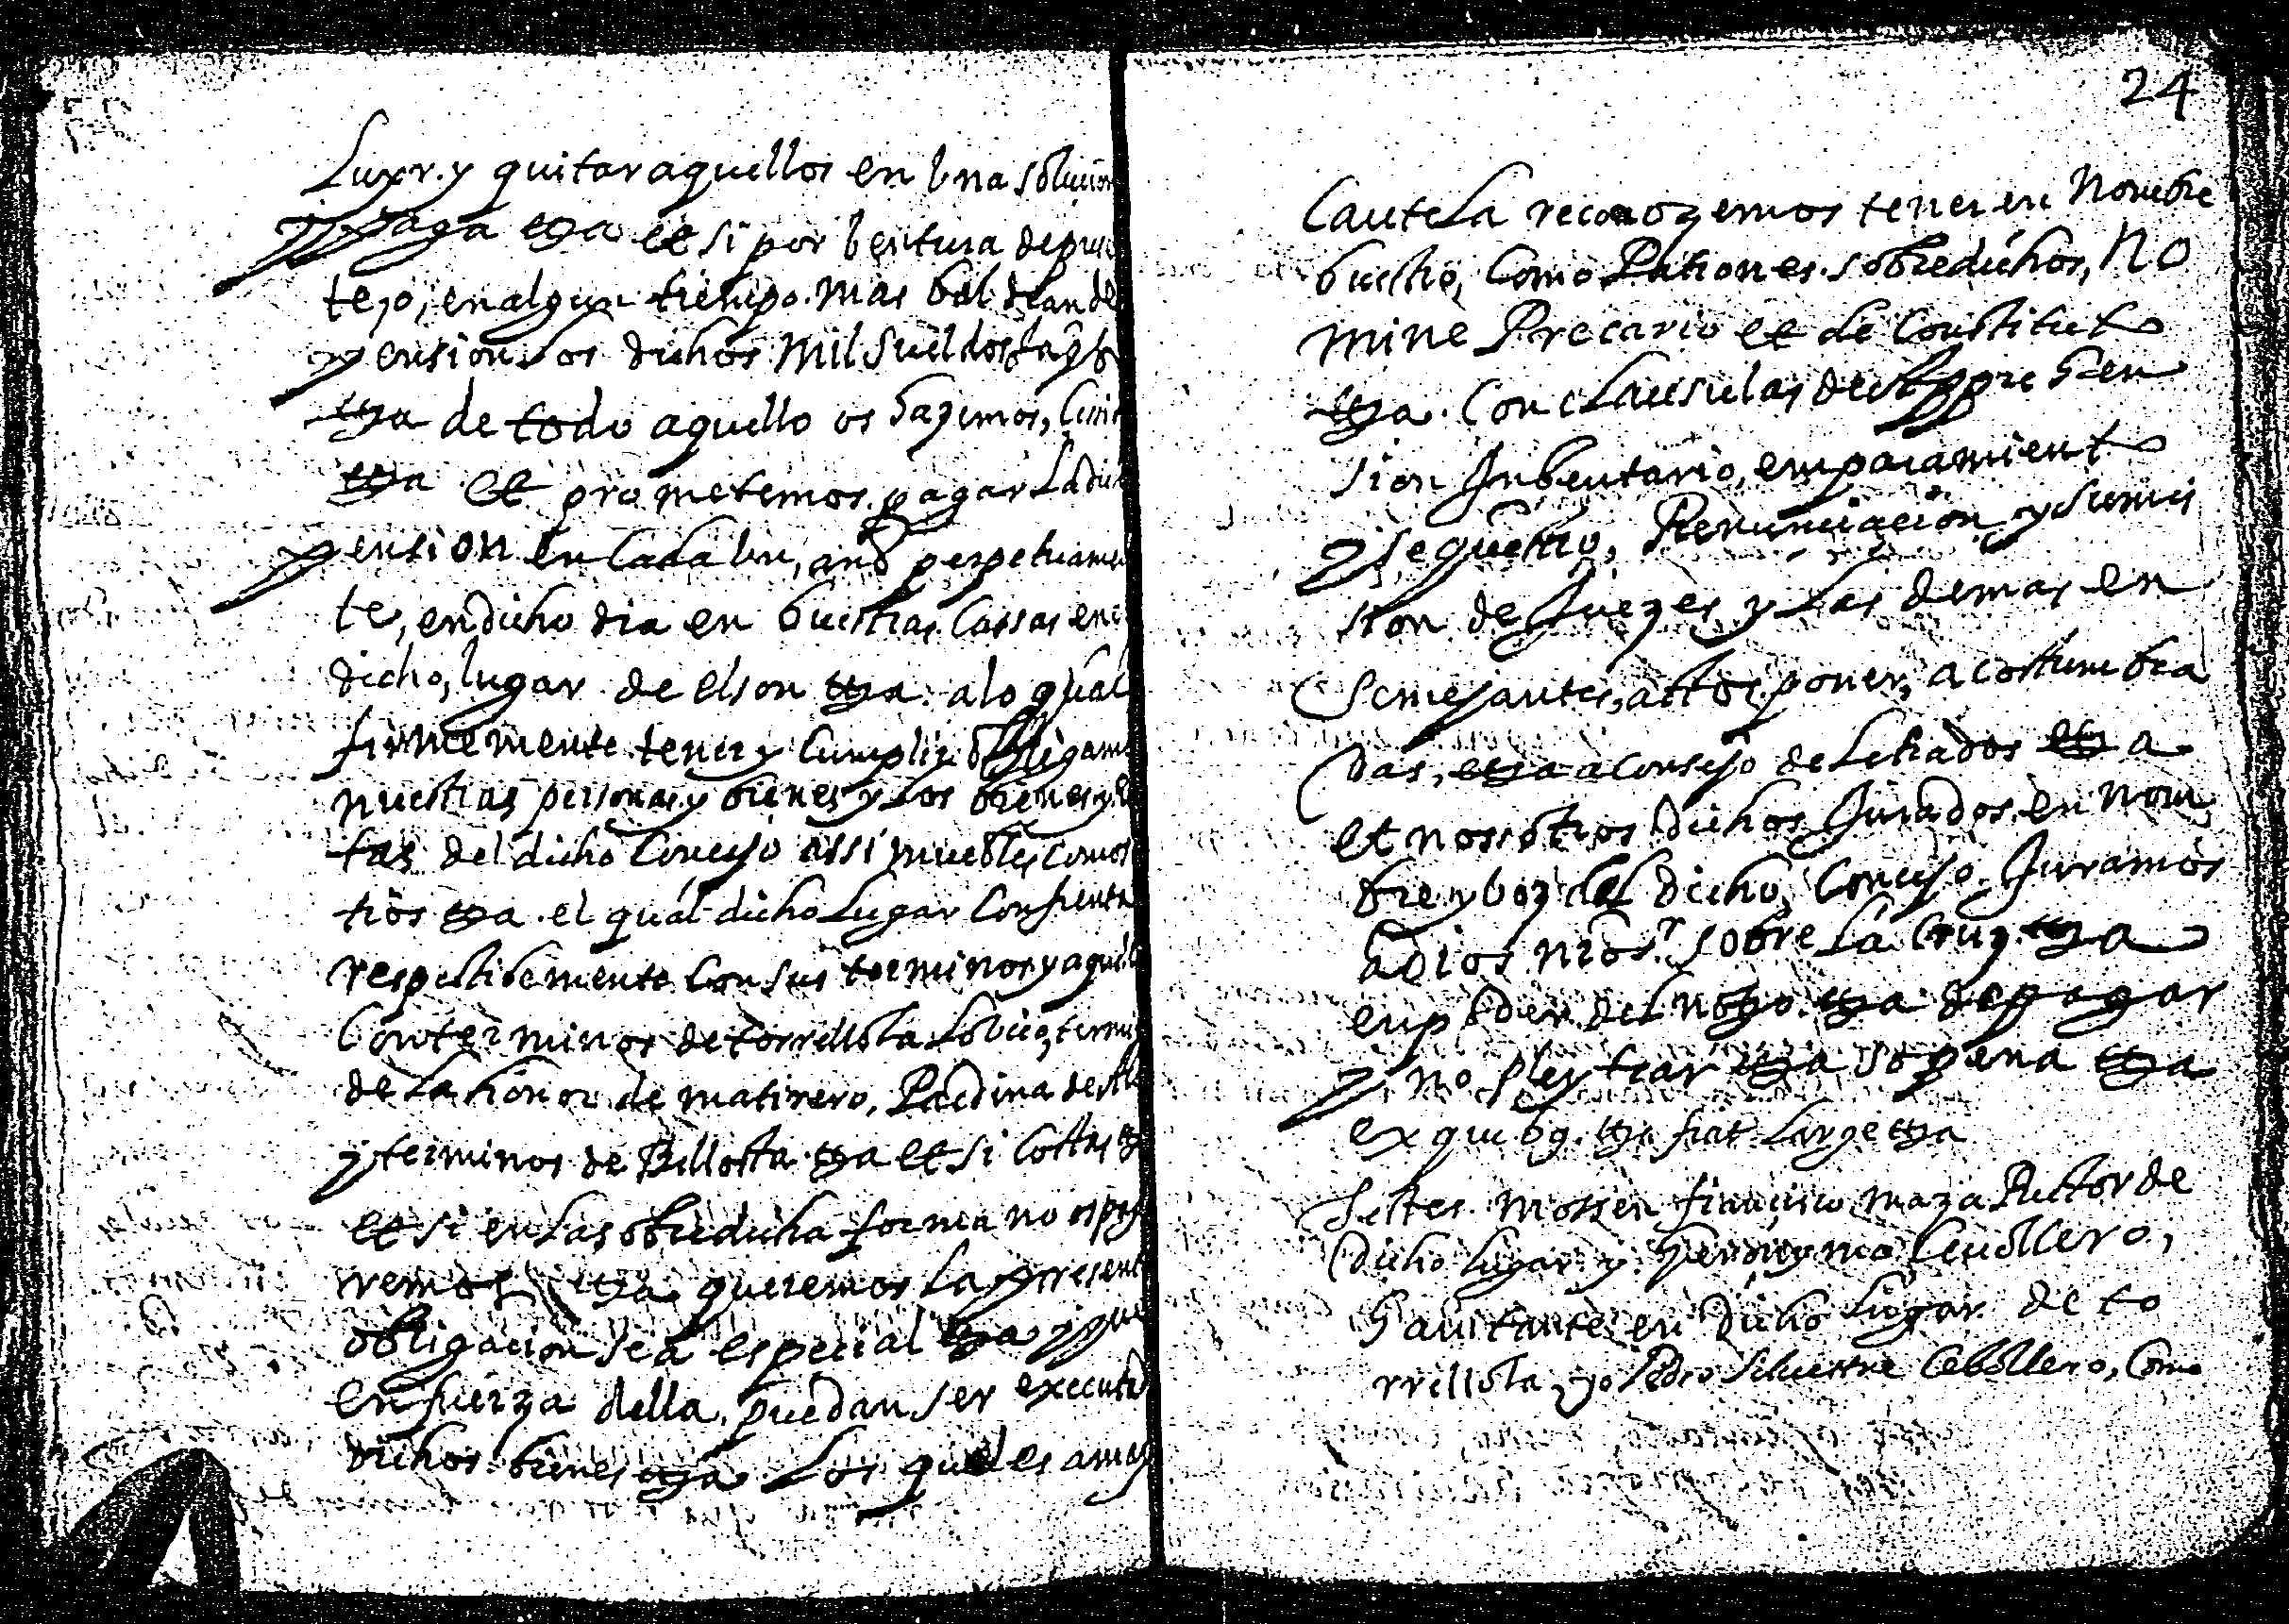 Luyr. y quitar aquellos en bna solucion
y paga etza et si por bentura de pres
tejo, en algun tiempo. mas bal dran de
pension Los dichos mil sueldos Jaqs
etza de todo aquello os hazemos, Cent
etza et prometemos pagar La dich
pension en Cada bn, año perpetuamen
te, en dicho dia en buestras Cassas en el
dicho, lugar de elson etza. a lo qual
firmemente tener y Cumplir obligamos
nuestras personas y bienes y Los bienes y Re
tas del dicho Concejo assi muebles como si
tios etza. el qual dicho Lugar Confrenta
respectibemente Con sus terminos y aquellos
Con terminos de torrillola Lobico, termino
de La honor de matirero, Pardina de
y terminos de Billosta etza et si Costas etza
et si en La sobredicha forma no os paga
remos etza queremos La present
obligacion sea especial etza y que
en fuerza della, puedan ser executad
dichos bienes etza Los quales a mas
24
Cautela reconozemos tener en Nombre
buestro, Como Patrones sobredichos, No
mine Precario et de Constituto
etza. Con clausulas de apprehen
sion Inbentario, emparamiento
y sequestro, Renunciacion y sumis
sion de Juezes y Las demas en
Semejantes, actos poner, acostumbra
das, etza a Consejo de Letrados etza
et nosotros dichos Jurados en nom
bre y boz del dicho, Concejo Juramos
a Dios nro sr. sobre La Cruz etza
en poder del noto. etza de pagar
y no pleytear etza so pena etza
ex quibq. etza fiat Large etza
Testes. Mossen francisco maza Rector de
dicho Lugar y Heronymo Cevollero,
Havitante en dicho Lugar de to
rrillola, yo Pedro Silvestre Cebollero, Como